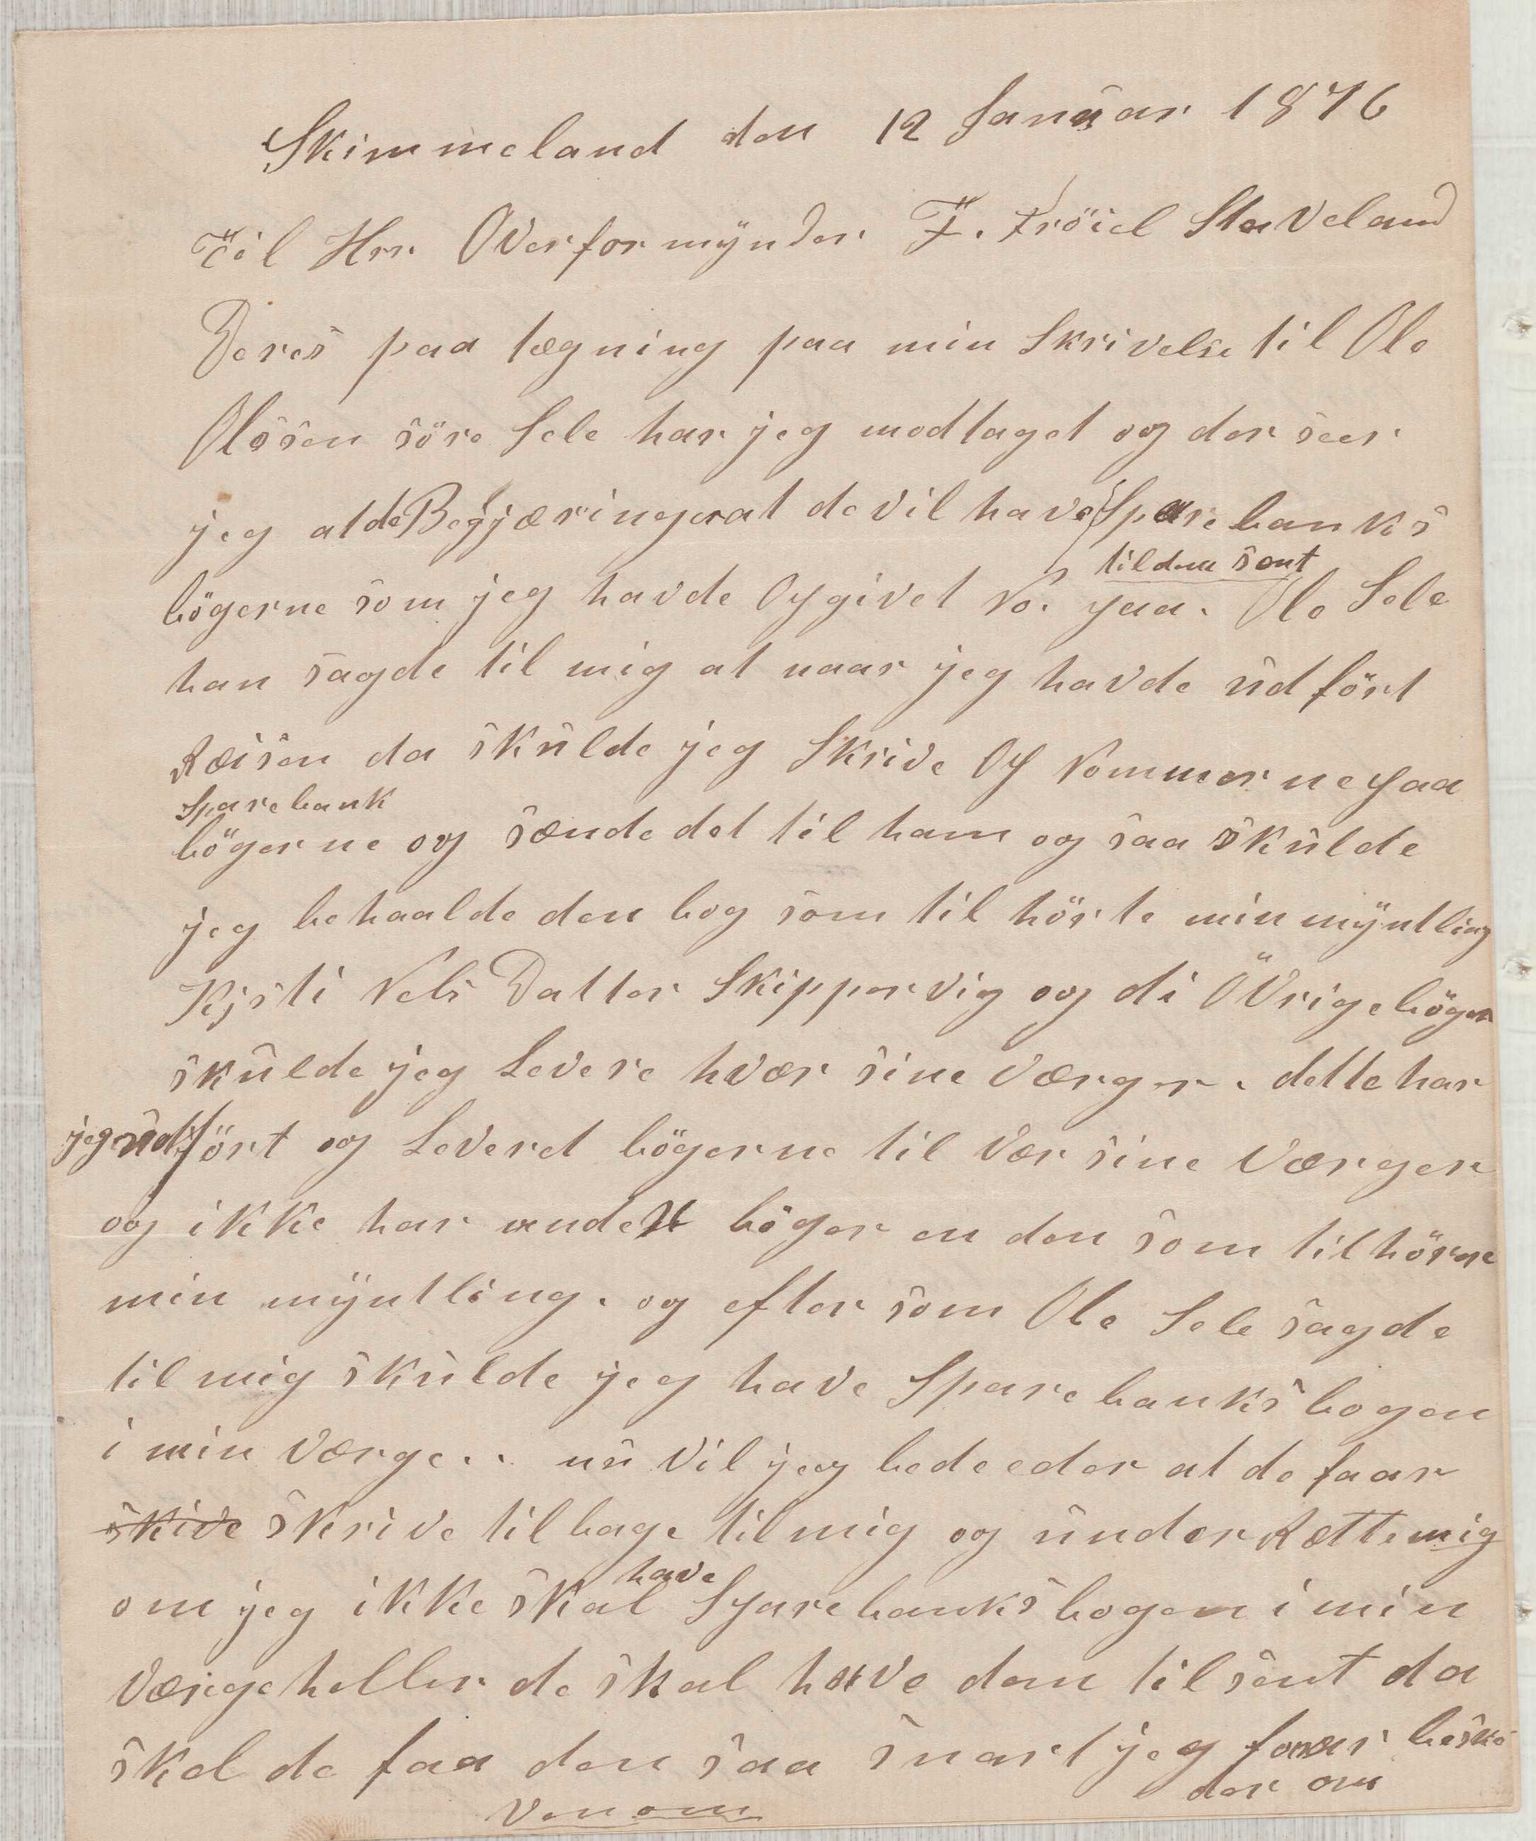 Skimmeland den 12 Januar 1876
Til Hrr Overformÿnder T. Tröiel Staveland
Deres paa tegning paa min Skrivelse til Ole
Olssen söre Sele har jeg modtaget og der seer
jeg at de Begjæringer at de vil have Spare banks
til dem sent
bögerne som jeg havde Opgivet No. paa. Ole Sele
han sagde til mig at naar jeg havde udfört
Ræisen da skulde jeg Skrive Op Nommerne paa
Sparebank
bögerne og sænde det til ham og saa skulde
jeg behaalde den bog som til hörte min mÿntling
Kjsti Nels Datter Skippervig og di Övrige böger
skulde jeg Levere hvær sine værger. dette har
jeg udfört og Leveret bögerne til vær sine værger
og ikke har andet böger en den som tilhörne
min mÿntling. og efter som Ole Sele sagde
til mig skulde jeg have Spare banks bogen
i min værge.. nu vil jeg bede eder at de faar
skive skrive tilbage til mig og under Rætte mig
have
om jeg ikke skal Sparebanksbogen i min
værge heller de skal have den til sent da
skal de faa den saa snart jeg faaar beske
der om
Ven om